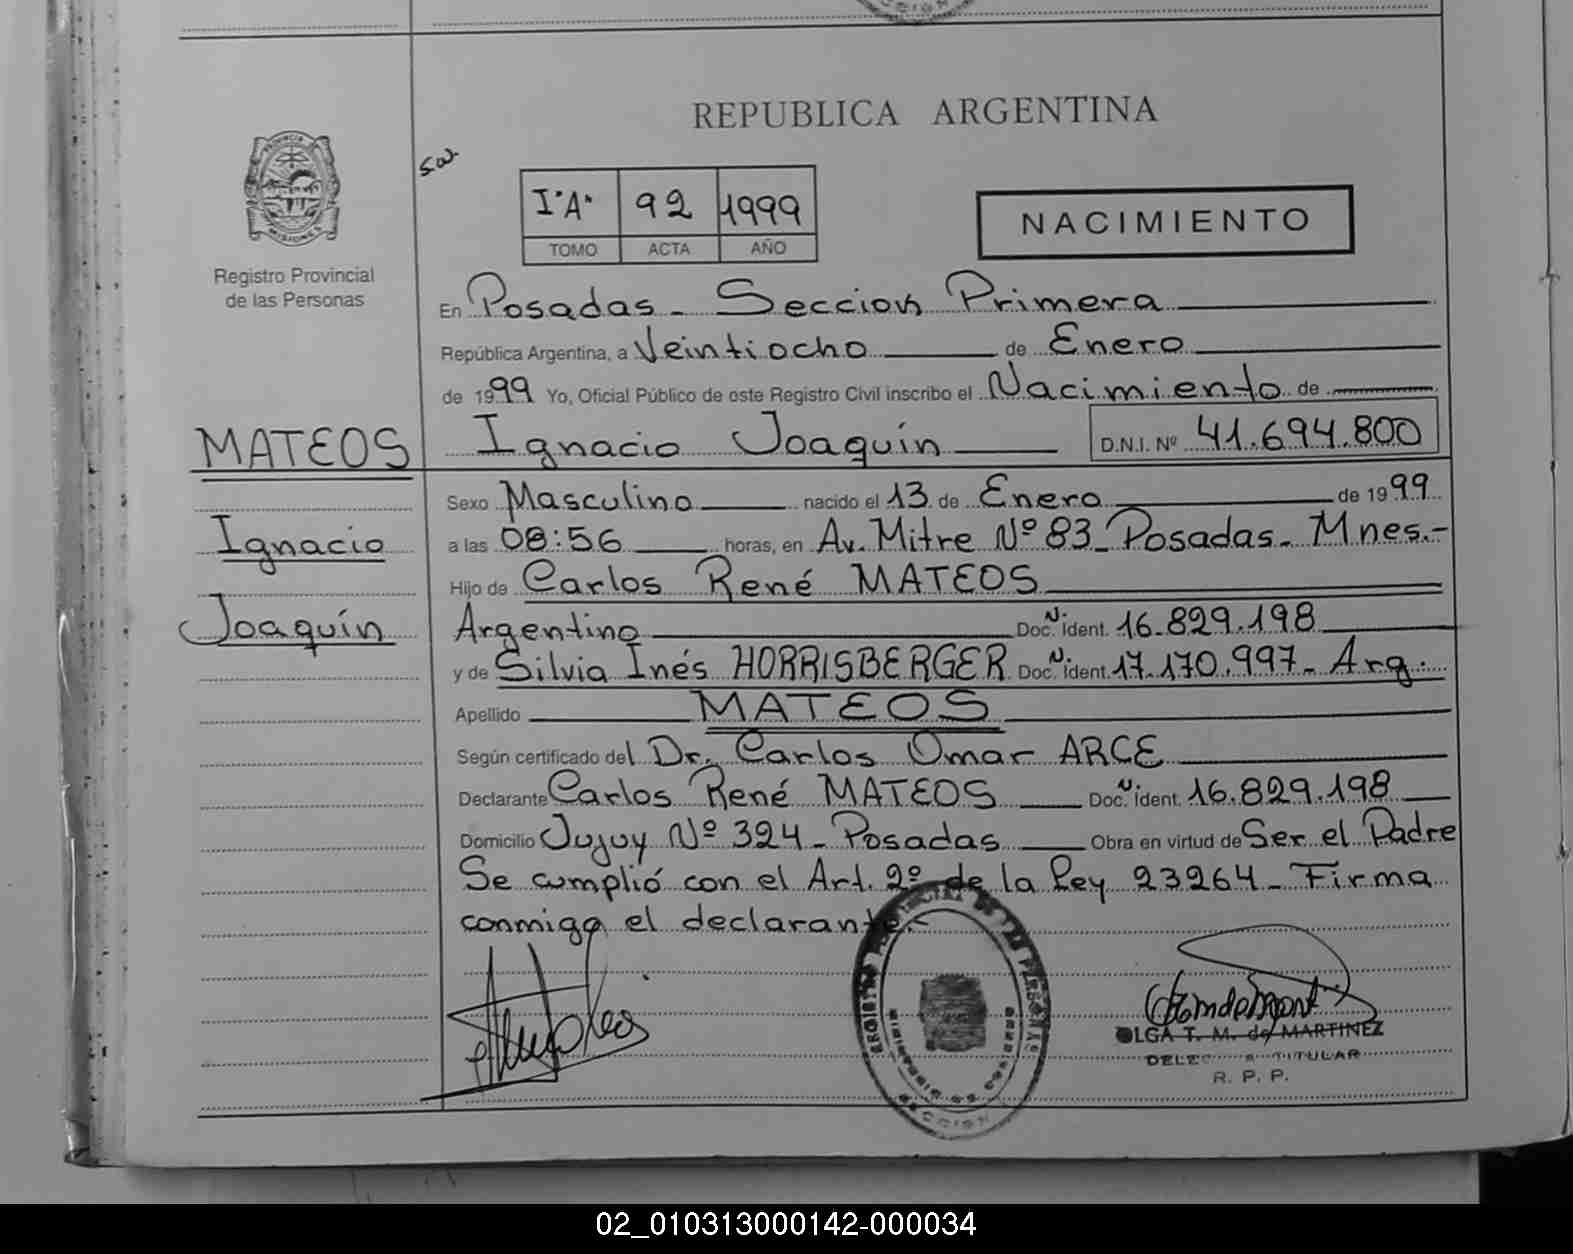 REPUBLICA ARGENTINA
PROVINCIA
MISIONES
Registro Provincial
de las Personas
I°A° 92 1999
TOMO ACTA AÑO
NACIMIENTO
En Posadas - Seccion Primera
República Argentina, a Veintiocho de Enero
de 1999 Yo, Oficial Público de este Registro Civil inscribo el Nacimiento de
MATEOS Ignacio Joaquín D.N.I. Nº 41.694.800
Sexo Masculino nacido el 13 de Enero de 1999
Ignacio a las 08:56 horas, en Av. Mitre Nº 83 - Posadas - Mnes.-
Hijo de Carlos René MATEOS
Joaquín Argentino Doc. N. ident. 16.829.198
y de Silvia Inés HORRISBERGER Doc. N. ident. 17.170.997 - Arg.
Apellido MATEOS
Según certificado del Dr. Carlos Omar ARCE
Declarante Carlos René MATEOS Doc. N. ident. 16.829.198
Domicilio Jujuy Nº 324 - Posadas Obra en virtud de Ser el Padre
Se cumplió con el Art. 2º de la Ley 23264 - Firma
conmigo el declarante.-
OLGA T. M. de MARTINEZ
TITULAR
R. P. P.
02_010313000142-000034